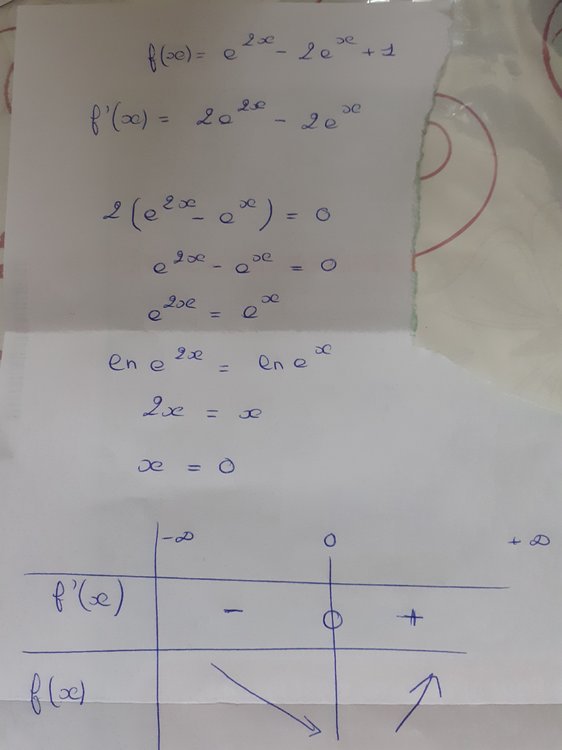 f(x) = e^{2x} - 2e^{x} + 1
f'(x) = 2e^{2x} - 2e^{x}
2(e^{2x} - e^{x}) = 0
e^{2x} - e^{x} = 0
e^{2x} = e^{x}
ln e^{2x} = ln e^{x}
2x = x
x = 0
-∞ 0 +∞
f'(x) - 0 +
f(x) ↘ ↗